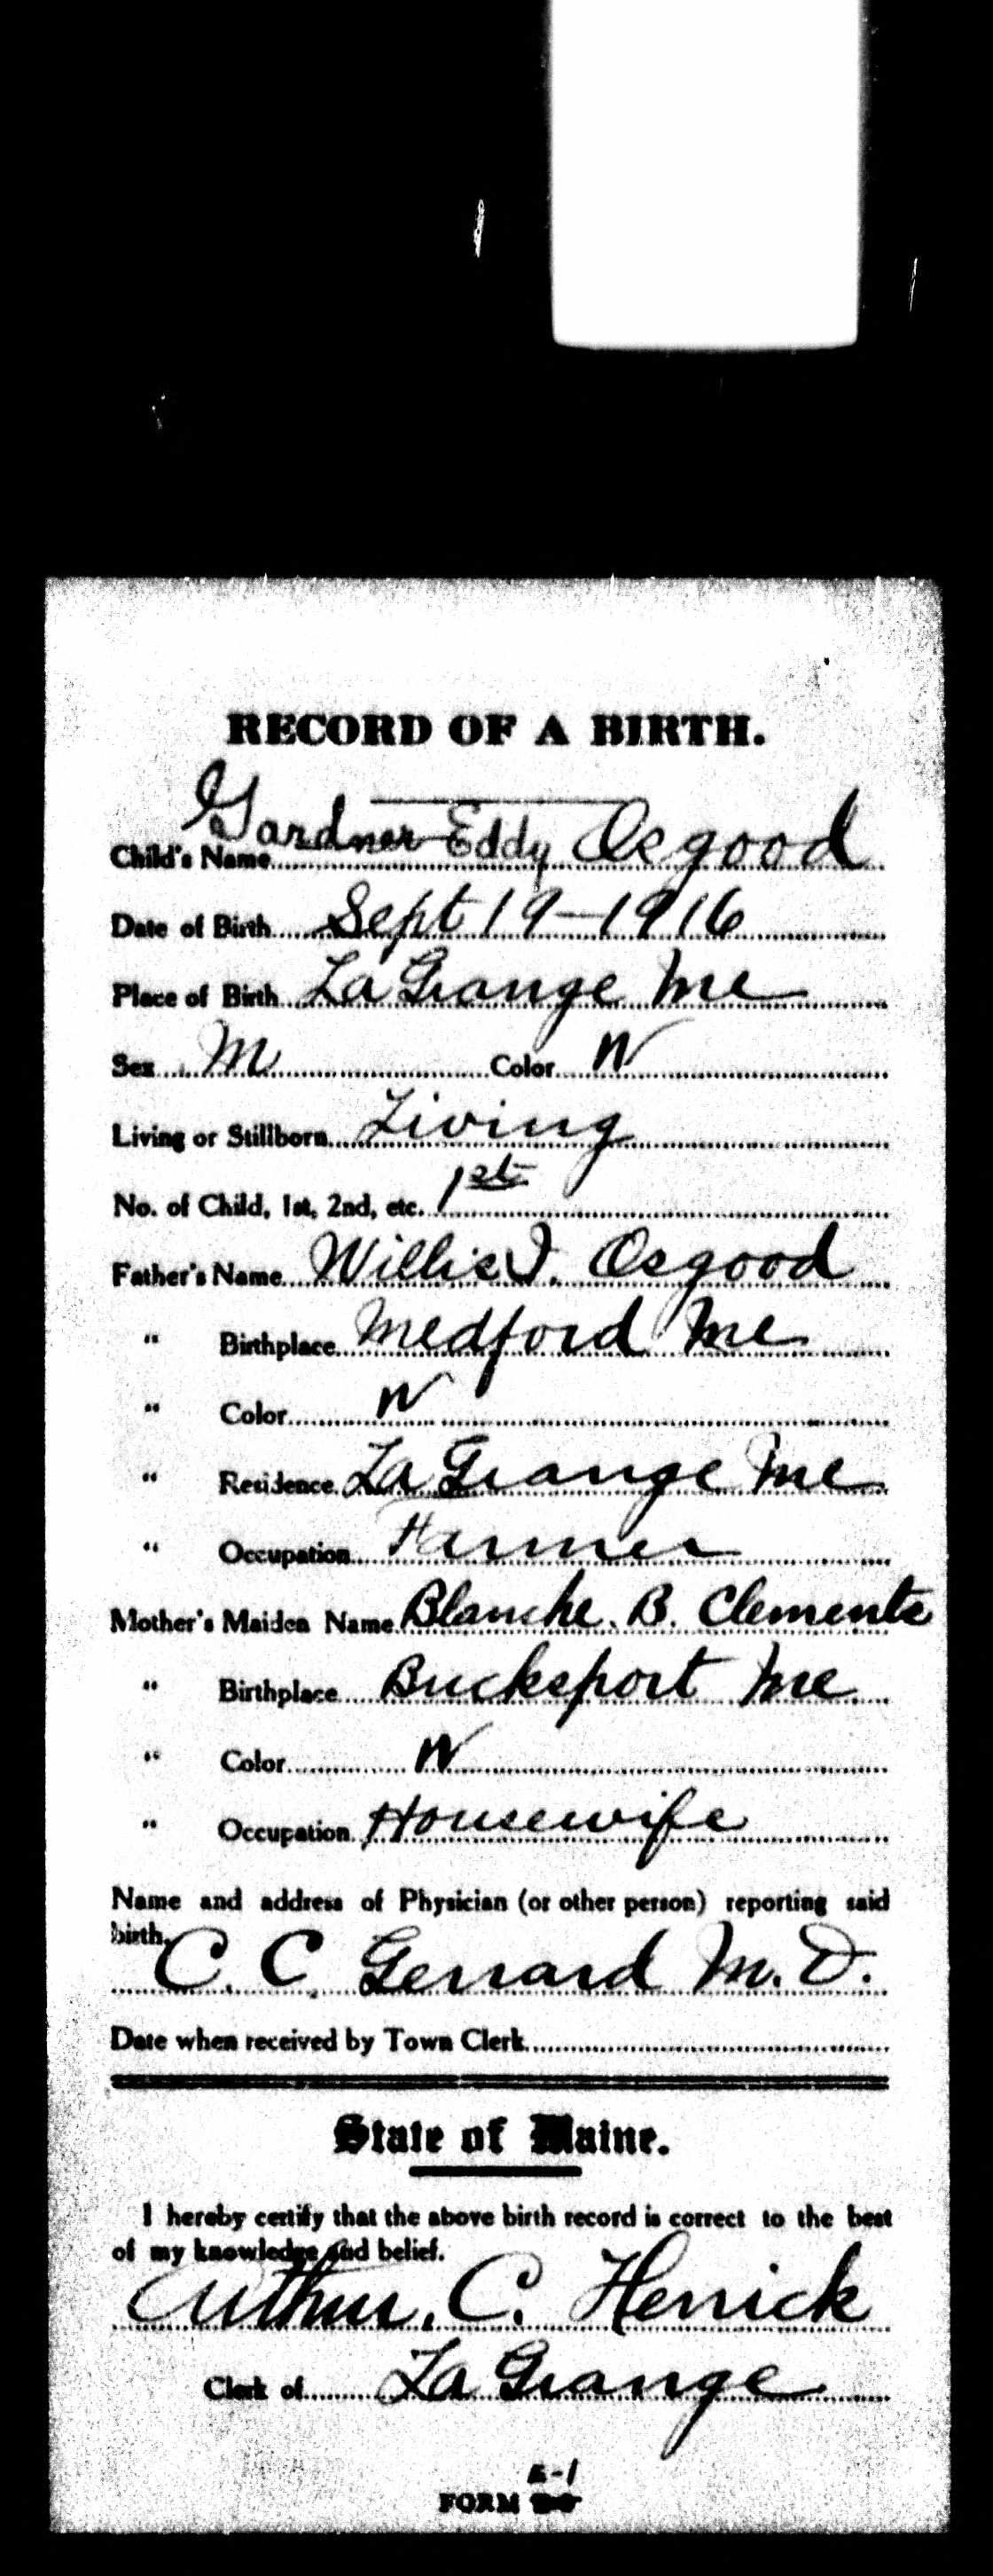 RECORD OF A BIRTH.
Child's Name Gardner Eddy Osgood
Date of Birth Sept 19-1916
Place of Birth La Grange Me
Sex M Color W
Living or Stillborn Living
No. of Child, 1st, 2nd, etc. 1st
Father's Name Willis I. Osgood
" Birthplace Medford Me
" Color W
" Residence La Grange Me
" Occupation Farmer
Mother's Maiden Name Blanche. B. Clements
" Birthplace Bucksport Me
" Color W
" Occupation Housewife
Name and address of Physician (or other person) reporting said
birth.
C. C. Gerrard M. D.
Date when received by Town Clerk
State of Maine.
I hereby certify that the above birth record is correct to the best
of my knowledge and belief.
Arthur. C. Herrick
Clerk of La Grange
FORM